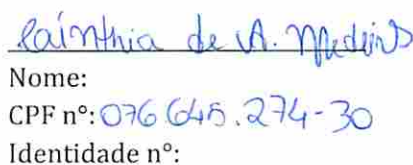 Cainthia de A. Medeiros
Nome:
CPF nº: 076 645.274-30
Identidade nº: